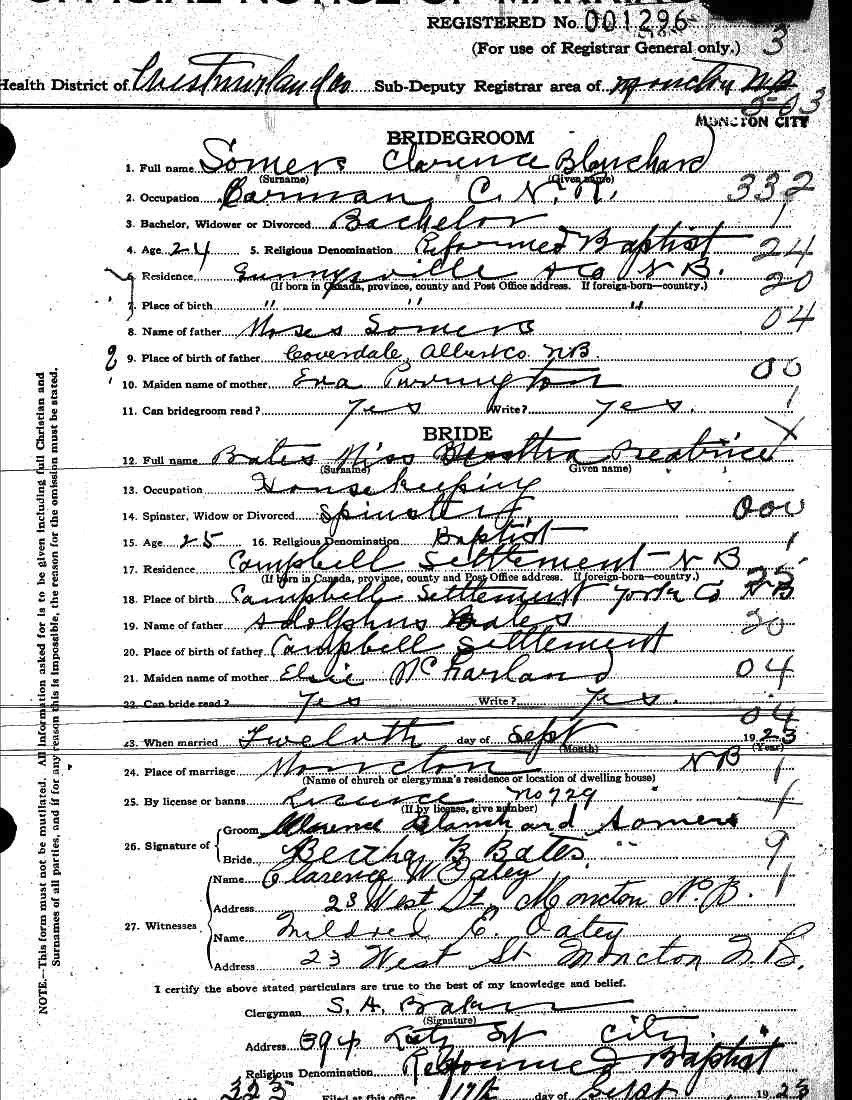 OFFICIAL NOTICE OF MARRIAGE
REGISTERED No. 001296
(For use of Registrar General only.) 3
Health District of Westmorland Co Sub-Deputy Registrar area of Moncton NB
MONCTON CITY
BRIDEGROOM
1. Full name Somers Clarence Blanchard
(Surname) (Given name)
2. Occupation Carman C.N.R. 332
3. Bachelor, Widower or Divorced Bachelor 1
4. Age 24 5. Religious Denomination Reformed Baptist 24
6. Residence Sunnysville A Co N B. 20
(If born in Canada, province, county and Post Office address. If foreign-born—country.)
7. Place of birth " " " 04
8. Name of father Moses Somers
9. Place of birth of father Coverdale, Albert Co. NB. 00
10. Maiden name of mother Eva Purrington
11. Can bridegroom read? yes Write? yes. 1
BRIDE
12. Full name Bates Miss Beatrice X
(Surname) Given name)
13. Occupation Housekeeping
14. Spinster, Widow or Divorced Spinster 000
15. Age 25 16. Religious Denomination Baptist 1
17. Residence Campbell Settlement N B
(If born in Canada, province, county and Post Office address. If foreign-born—country.)
18. Place of birth Campbell Settlement York Co NB
19. Name of father Adolphus Bates 20
20. Place of birth of father Campbell Settlement
21. Maiden name of mother Elsie McFarland 04
22. Can bride read? Yes Write? Yes.
04
23. When married Twelvth day of Sept 1923
(Month) (Year)
24. Place of marriage Moncton N B 1
(Name of church or clergyman's residence or location of dwelling house)
25. By license or banns Licence No 729 1
(If by license, give number)
26. Signature of Groom Clarence Blanchard Somers
Bride Bertha B Bates 9
27. Witnesses Name Clarence W Oatey 1
Address 23 West St, Moncton N.B.
Name Mildred E. Oatey
Address 23 West St Moncton N.B.
I certify the above stated particulars are true to the best of my knowledge and belief.
Clergyman S. A. Baker
(Signature)
Address 394 Lutz St City
Religious Denomination Reformed Baptist
323 Filed at this office 17th day of Sept 1923
NOTE.—This form must not be mutilated. All information asked for is to be given including full Christian and
Surnames of all parties, and if for any reason this is impossible, the reason for the omission must be stated.